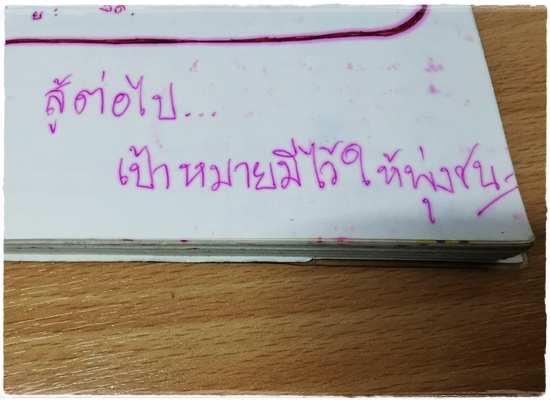 สู้ต่อไป...
เป้าหมายมีไว้ให้พุ่งชน